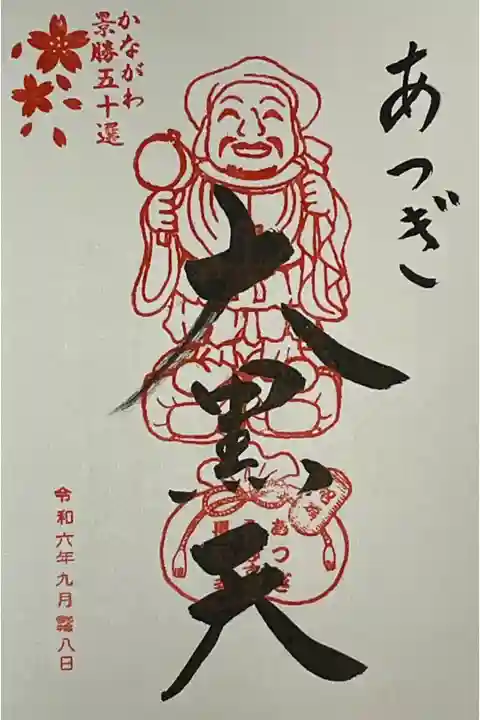 あつぎ
大黒天
かながわ
景勝五十選
あつぎ
令和六年九月 八日